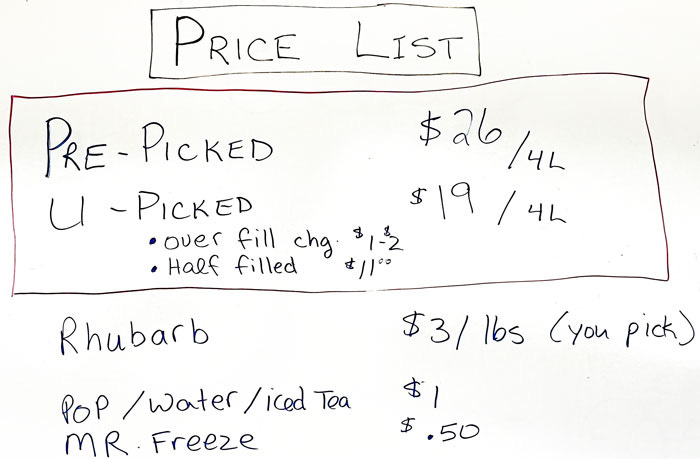 PRICE LIST
PRE-PICKED $26/4L
U-PICKED $19/4L
• over fill chg. $1-$2
• Half filled $11.00
Rhubarb $3/lbs (you pick)
POP/water/iced Tea $1
MR. Freeze $.50